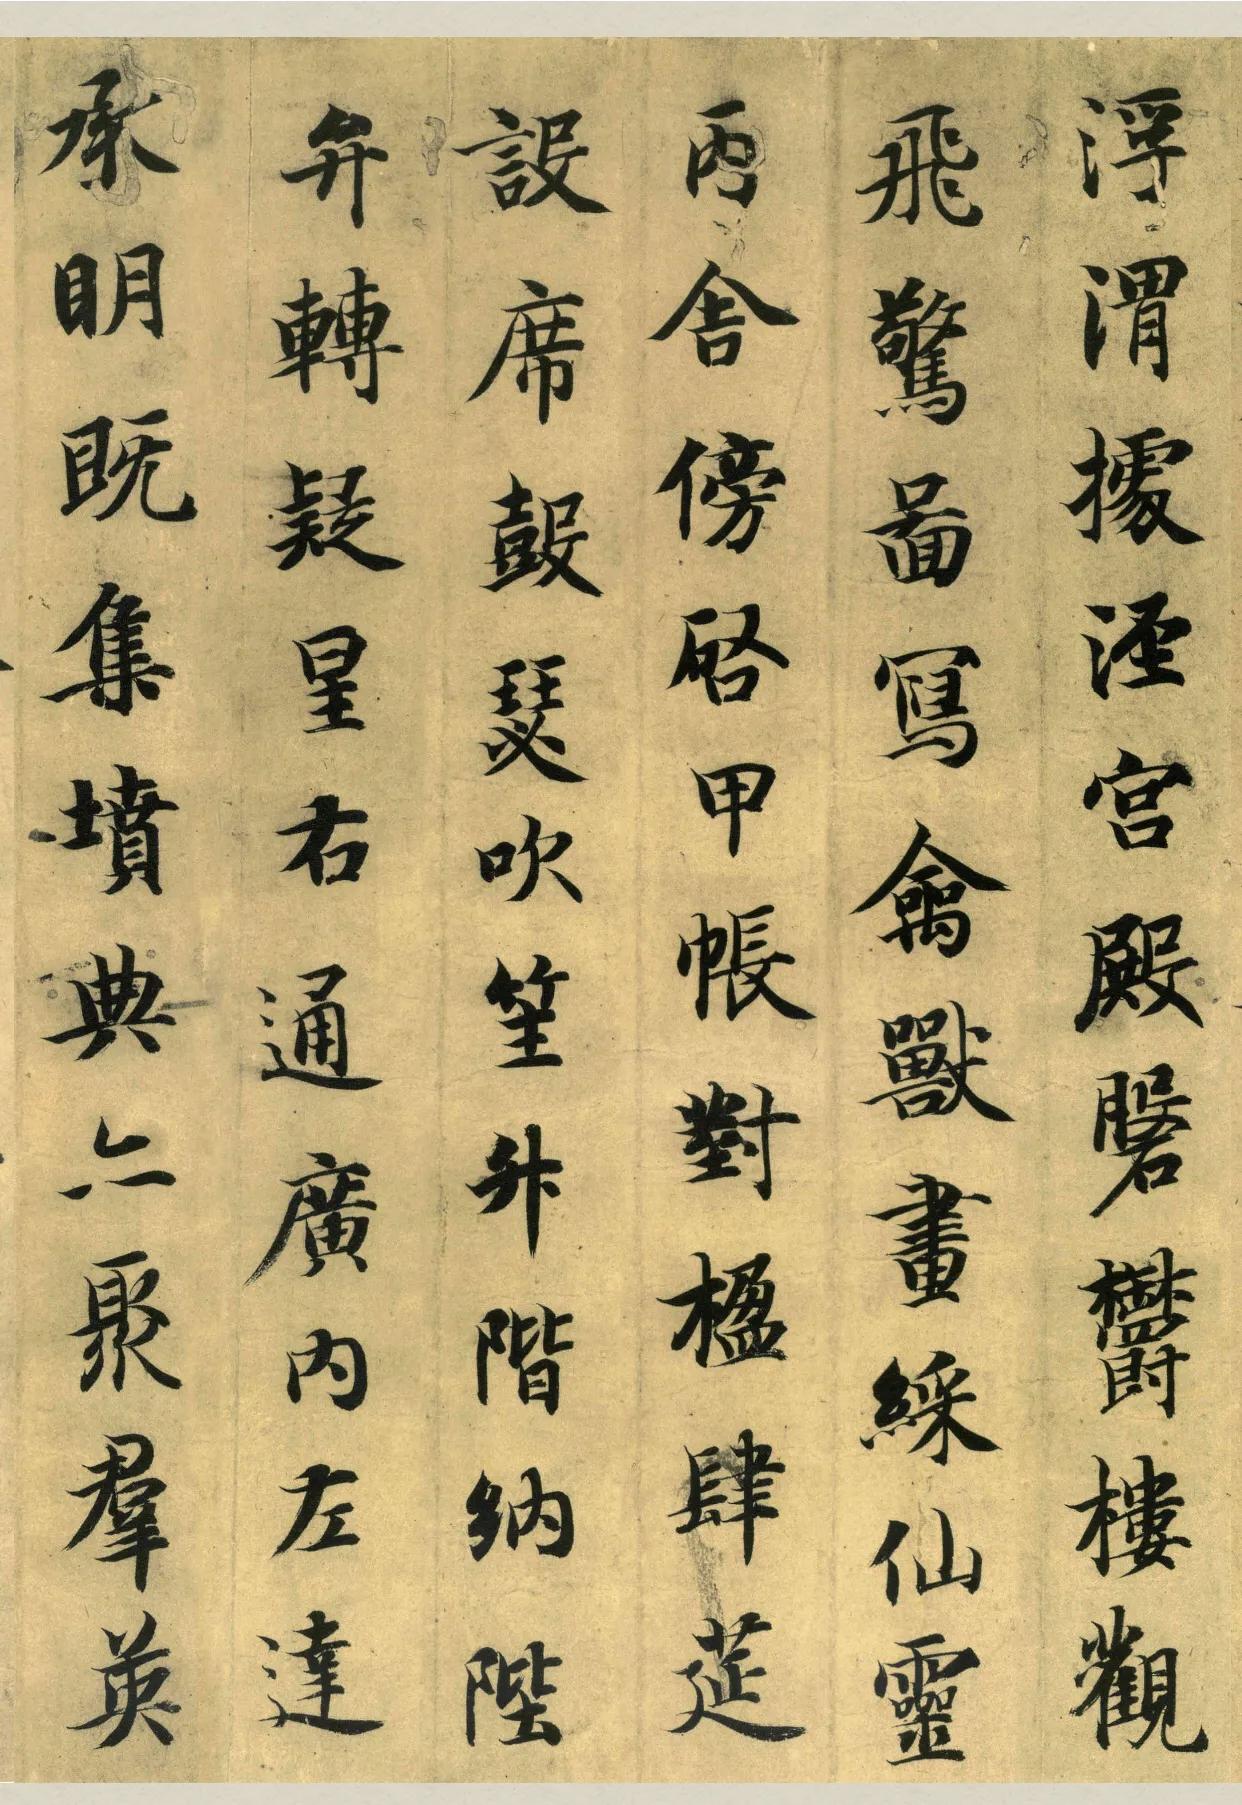 浮渭據涇宮殿磐欝樓觀
飛驚啚寫禽獸畫綵仙靈
丙舍傍啓甲帳對楹肆莚
設席鼓瑟吹笙升階納陛
弁轉疑星右通廣內左達
承明既集墳典亦聚群英